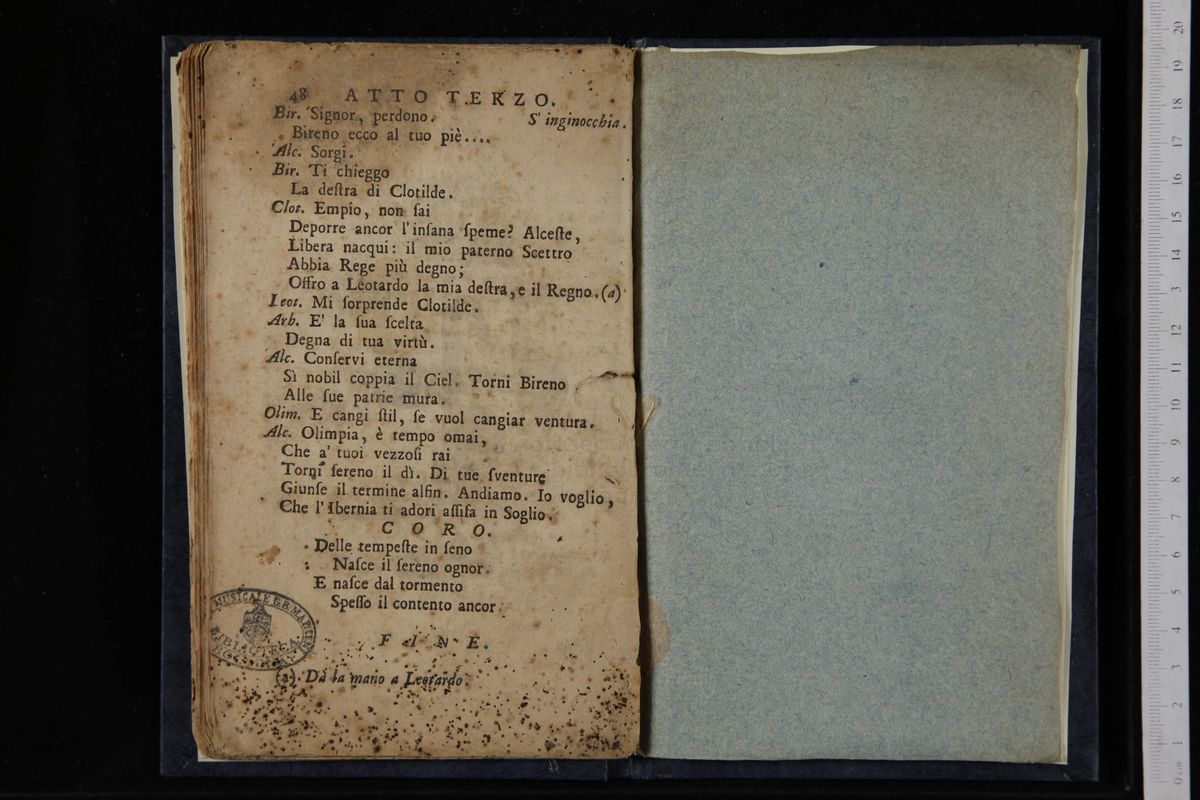 48 ATTO TERZO.
Bir. Signor, perdono. S' inginocchia.
Bireno ecco al tuo piè....
Alc. Sorgi.
Bir. Ti chieggo
La deſtra di Clotilde.
Clot. Empio, non ſai
Deporre ancor l'inſana ſpeme? Alceſte,
Libera nacqui: il mio paterno Scettro
Abbia Rege più degno;
Offro a Leotardo la mia deſtra, e il Regno. (a)
Leot. Mi ſorprende Clotilde.
Arb. E' la ſua ſcelta
Degna di tua virtù.
Alc. Conſervi eterna
Sì nobil coppia il Ciel. Torni Bireno
Alle ſue patrie mura.
Olim. E cangi ſtil, ſe vuol cangiar ventura.
Alc. Olimpia, è tempo omai,
Che a' tuoi vezzoſi rai
Torni ſereno il dì. Di tue ſventure
Giunſe il termine alfin. Andiamo. Io voglio,
Che l'Ibernia ti adori aſſiſa in Soglio.
CORO.
Delle tempeſte in ſeno
Naſce il ſereno ognor.
E naſce dal tormento
Speſſo il contento ancor.
FINE.
(a) Dà la mano a Leotardo.
MUSICALE G.B. MARTINI
BIBLIOTECA